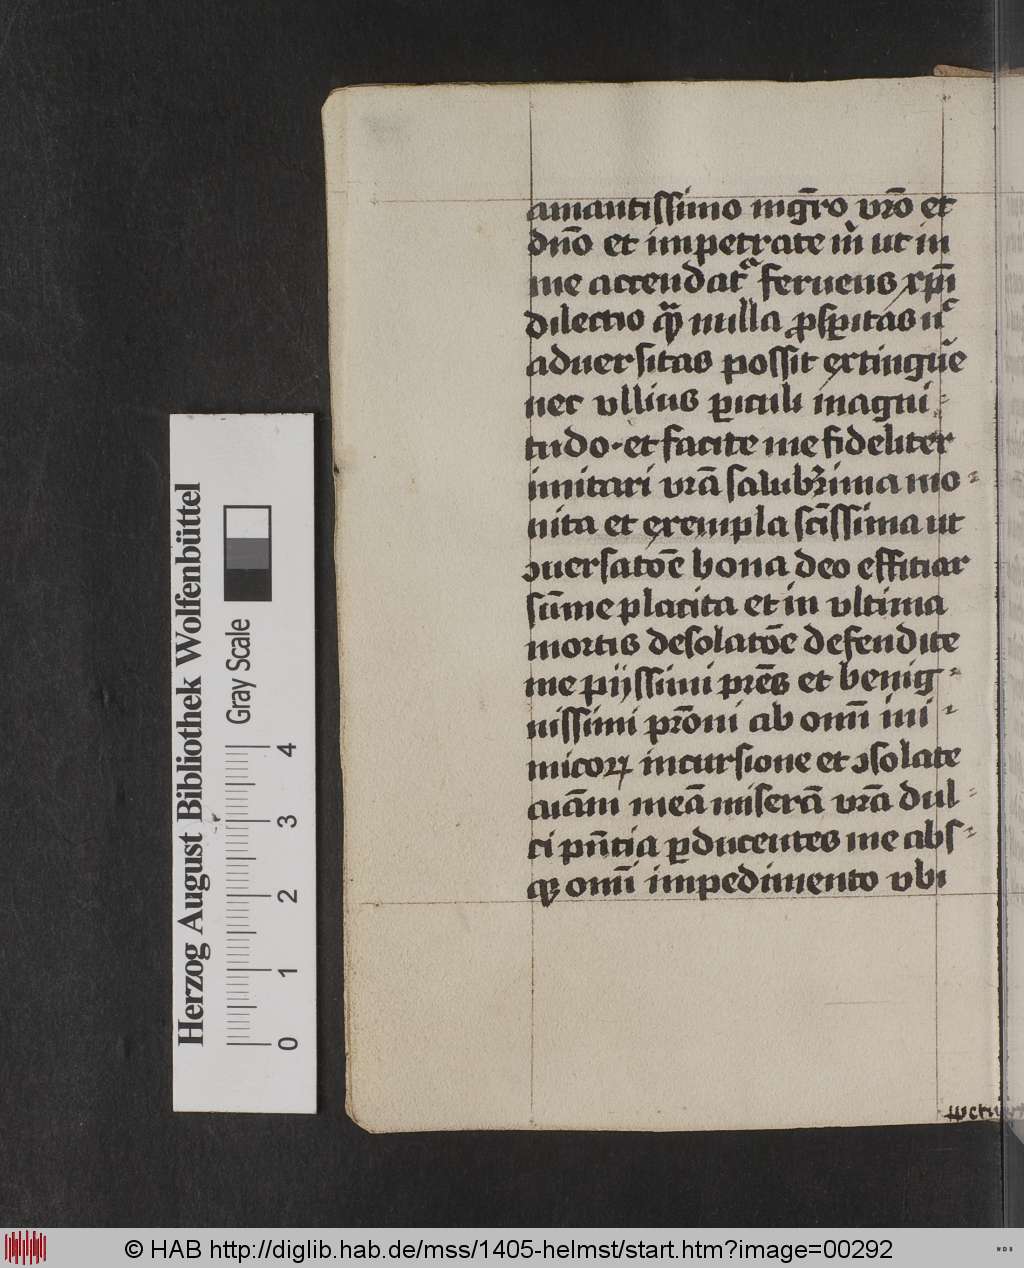 amantissimo mgr̄o vr̄o et
dn̄o et impetrate m̄ ut in
me accendat᷑ feruens xp̄i
dilectio qua nulla ꝓsꝑitas uͨ
aduersitas possit extingue
nec vllius ꝑiculi magni
tudo · et facite me fideliter
imitari vrā salubrima mo-
nita et exempla sc̄issima ut
ꝯuersatōe bona deo efficiar
sūme placita et in vltima
mortis desolatōe defendite
me pijssimi prēs et benig-
nissimi pr̄oni ab omī ini-
micoꝝ incursione et ꝯsolate
aīam meā miserā vrā dul-
ci pn̄tia ꝑducentes me abs-
qꝫ omī impedimento vbi
Herzog August Bibliothek Wolfenbüttel
Gray Scale
0 1 2 3 4
© HAB http://diglib.hab.de/mss/1405-helmst/start.htm?image=00292